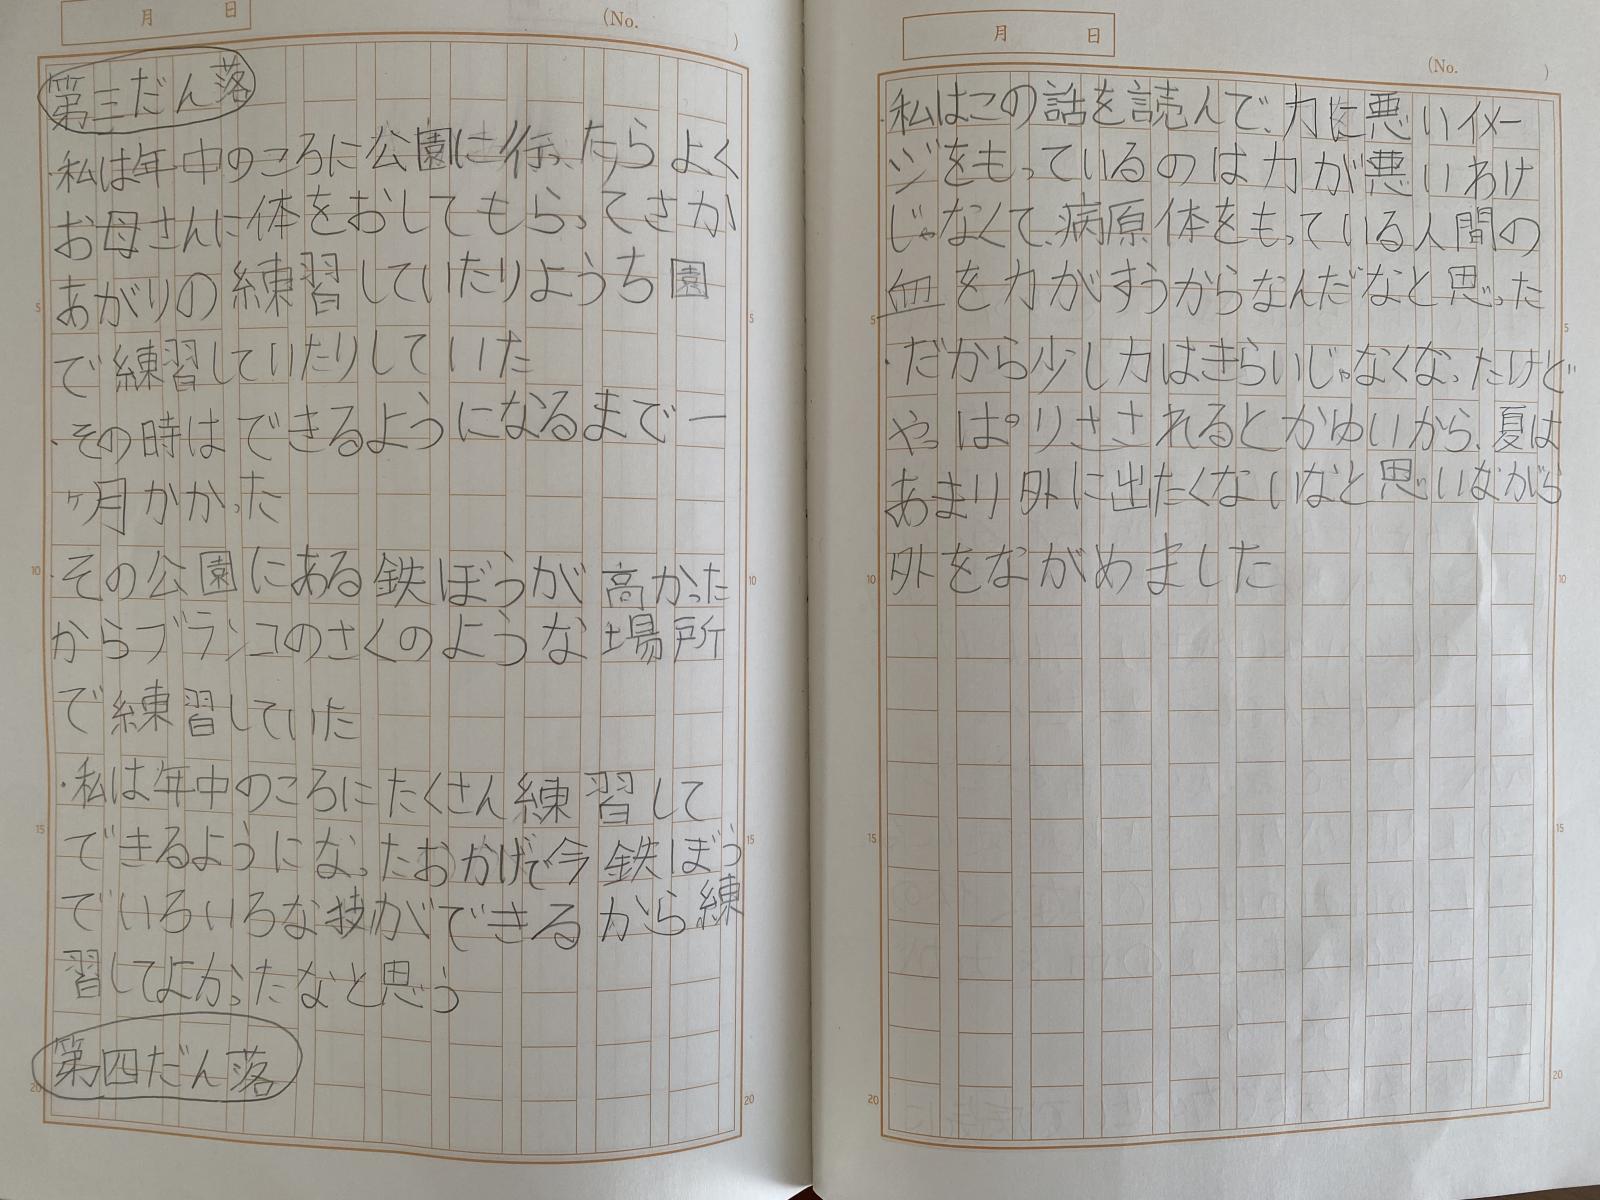 月 日 (No. )
第三だん落
・私は年中のころに公園に行ったらよく
お母さんに体をおしてもらってさか
あがりの練習していたりようち園
で練習していたりしていた
・その時はできるようになるまで一
ヶ月かかった
・その公園にある鉄ぼうが高かった
からブランコのさくのような場所
で練習していた
・私は年中のころにたくさん練習して
できるようになったおかげで今鉄ぼう
でいろいろな技ができるから練
習してよかったなと思う
第四だん落
5
10
15
20
5
10
15
20
月 日 (No. )
・私はこの話を読んで、力に悪いイメー
ジをもっているのは力が悪いわけ
じゃなくて、病原体をもっている人間の
血を力がすうからなんだなと思った
・だから少し力はきらいじゃなくなったけど
やっぱりさされるとかゆいから、夏は
あまり外に出たくないなと思いながら
外をながめました
5
10
15
20
5
10
15
20